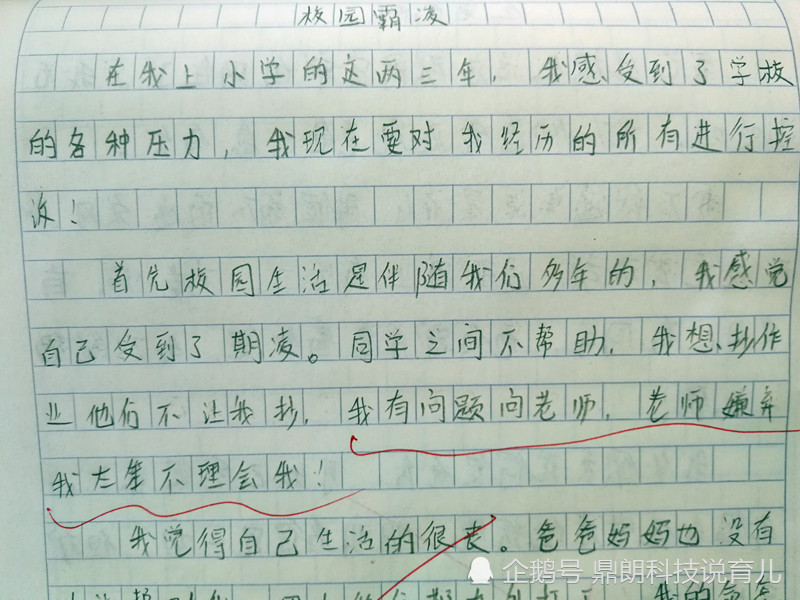 校园霸凌
在我上小学的这两三年，我感受到了学校
的各种压力，我现在要对我经历的所有进行控
诉！
首先校园生活是伴随我们多年的，我感觉
自己受到了期凌。同学之间不帮助，我想抄作
业他们不让我抄，我有问题问老师，老师嫌弃
我太笨不理会我！
我觉得自己生活的很丧。爸爸妈妈也没有
企鹅号 鼎朗科技说育儿